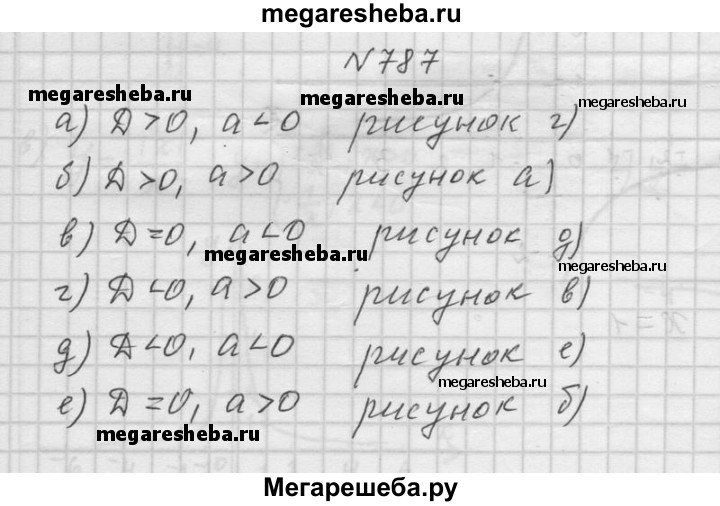 megaresheba.ru
N787
megaresheba.ru
megaresheba.ru
megaresheba.ru
а) D>0, a<0 рисунок г)
б) D>0, a>0 рисунок а)
в) D=0, a<0 рисунок д)
megaresheba.ru
megaresheba.ru
г) D<0, a>0 рисунок в)
д) D<0, a<0 рисунок е)
megaresheba.ru
е) D=0, a>0 рисунок б)
megaresheba.ru
Мегарешеба.ру